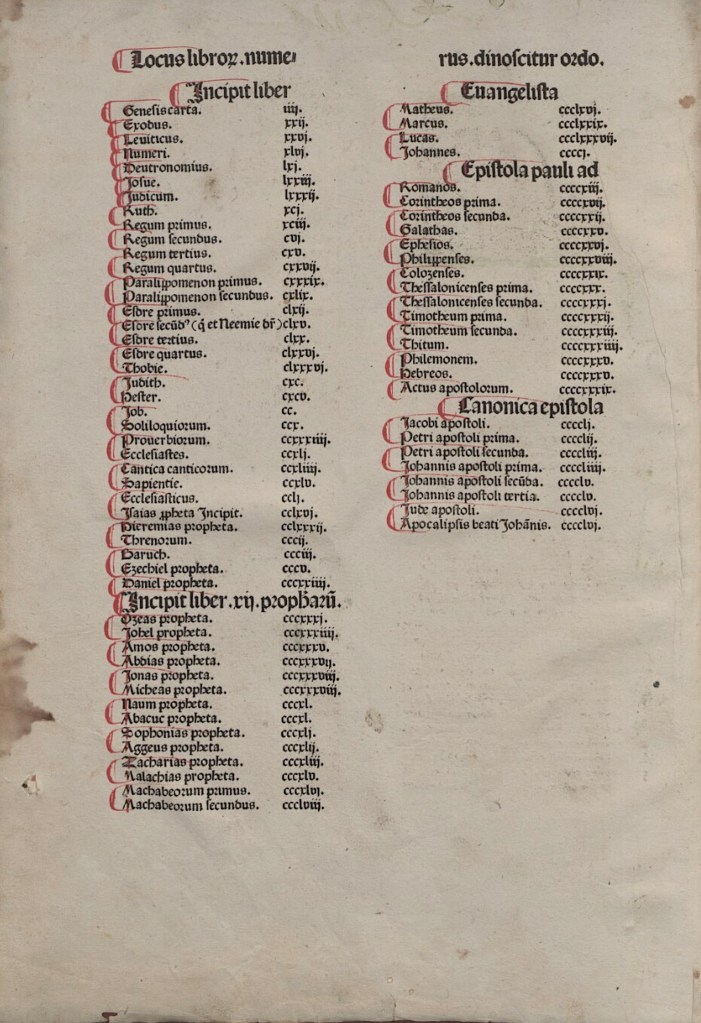 Locus libroꝝ. nume⸗
rus. dinoscitur ordo.
Incipit liber
Genesis carta. iiij.
Exodus. xxij.
Leuiticus. xxvj.
Numeri. xlvj.
Deutronomius. lxj.
Josue. lxxiij.
Judicum. lxxxij.
Ruth. xcj.
Regum primus. xciij.
Regum secundus. cvj.
Regum tertius. cxv.
Regum quartus. cxxvij.
Paralippomenon primus. cxxxix.
Paralippomenon secundus. cxlix.
Esdre primus. clxij.
Esdre secūdꝰ (q̄ et Neemie dr̄) clxv.
Esdre tertius. clxx.
Esdre quartus. clxxvj.
Thobie. clxxxvj.
Judith. cxc.
Hester. cxcv.
Job. cc.
Soliloquiorum. ccx.
Prouerbiorum. ccxxxiiij.
Ecclesiastes. ccxlj.
Cantica canticorum. ccxliiij.
Sapientie. ccxlv.
Ecclesiasticus. cclj.
Isaias ꝓpheta Incipit. cclxvj.
Hieremias propheta. cclxxxij.
Threnorum. cccij.
Baruch. ccciij.
Ezechiel propheta. cccv.
Daniel propheta. cccxxiiij.
Incipit liber .xij. prophaꝝ.
Ozeas propheta. cccxxxj.
Johel propheta. cccxxxiiij.
Amos propheta. cccxxxv.
Abdias propheta. cccxxxvij.
Jonas propheta. cccxxxviij.
Micheas propheta. cccxxxviij.
Naum propheta. cccxl.
Abacuc propheta. cccxl.
Sophonias propheta. cccxlj.
Aggeus propheta. cccxlij.
Zacharias propheta. cccxliij.
Malachias propheta. cccxlv.
Machabeorum primus. cccxlvj.
Machabeorum secundus. ccclviij.
Euangelista
Matheus. ccclxvj.
Marcus. ccclxxix.
Lucas. ccclxxxvij.
Johannes. ccccj.
Epistola pauli ad
Romanos. ccccxiij.
Corintheos prima. ccccxvij.
Corintheos secunda. ccccxxij.
Galathas. ccccxxv.
Ephesios. ccccxxvj.
Philippenses. ccccxxviij.
Colozenses. ccccxxix.
Thessalonicenses prima. ccccxxx.
Thessalonicenses secunda. ccccxxxj.
Timotheum prima. ccccxxxij.
Timotheum secunda. ccccxxxiij.
Thitum. ccccxxxiiij.
Philemonem. ccccxxxv.
Hebreos. ccccxxxv.
Actus apostolorum. ccccxxxix.
Canonica epistola
Jacobi apostoli. cccclj.
Petri apostoli prima. cccclij.
Petri apostoli secunda. ccccliij.
Johannis apostoli prima. ccccliiij.
Johannis apostoli secūda. cccclv.
Johannis apostoli tertia. cccclv.
Jude apostoli. cccclvj.
Apocalipsis beati Johānis. cccclvj.